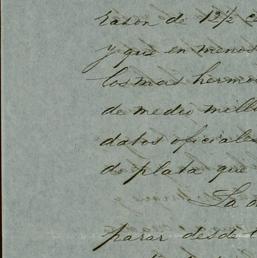 razon de 12½ c
y que en menos
los mas hermo
de medio milla
datos oficiales
de plata que
La a
parar desde l